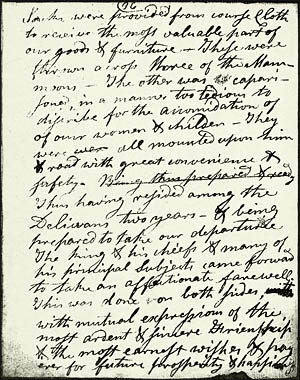 26
Sacks were provided from course Cloth
to receive the most valuable part of
our goods & furniture — These were
thrown across three of the Mam
moons — The other was capari-
soned, in a manner too tedious to
discribe for the accomidation of
our women & children — They
were all mounted upon him
& road with great convenience &
safety — Being thus prepared & ready
Thus having resided among the
Deliwans two years — & being
prepared to take our departure
The king & his chiefs & many of
his principal subjects came forward
to take an affectionate farewell
This was done on both sides
with mutual expressions of the
most ardent & sincere Friendship
& the most earnest wishes & pray
ers for future prosperity & happi